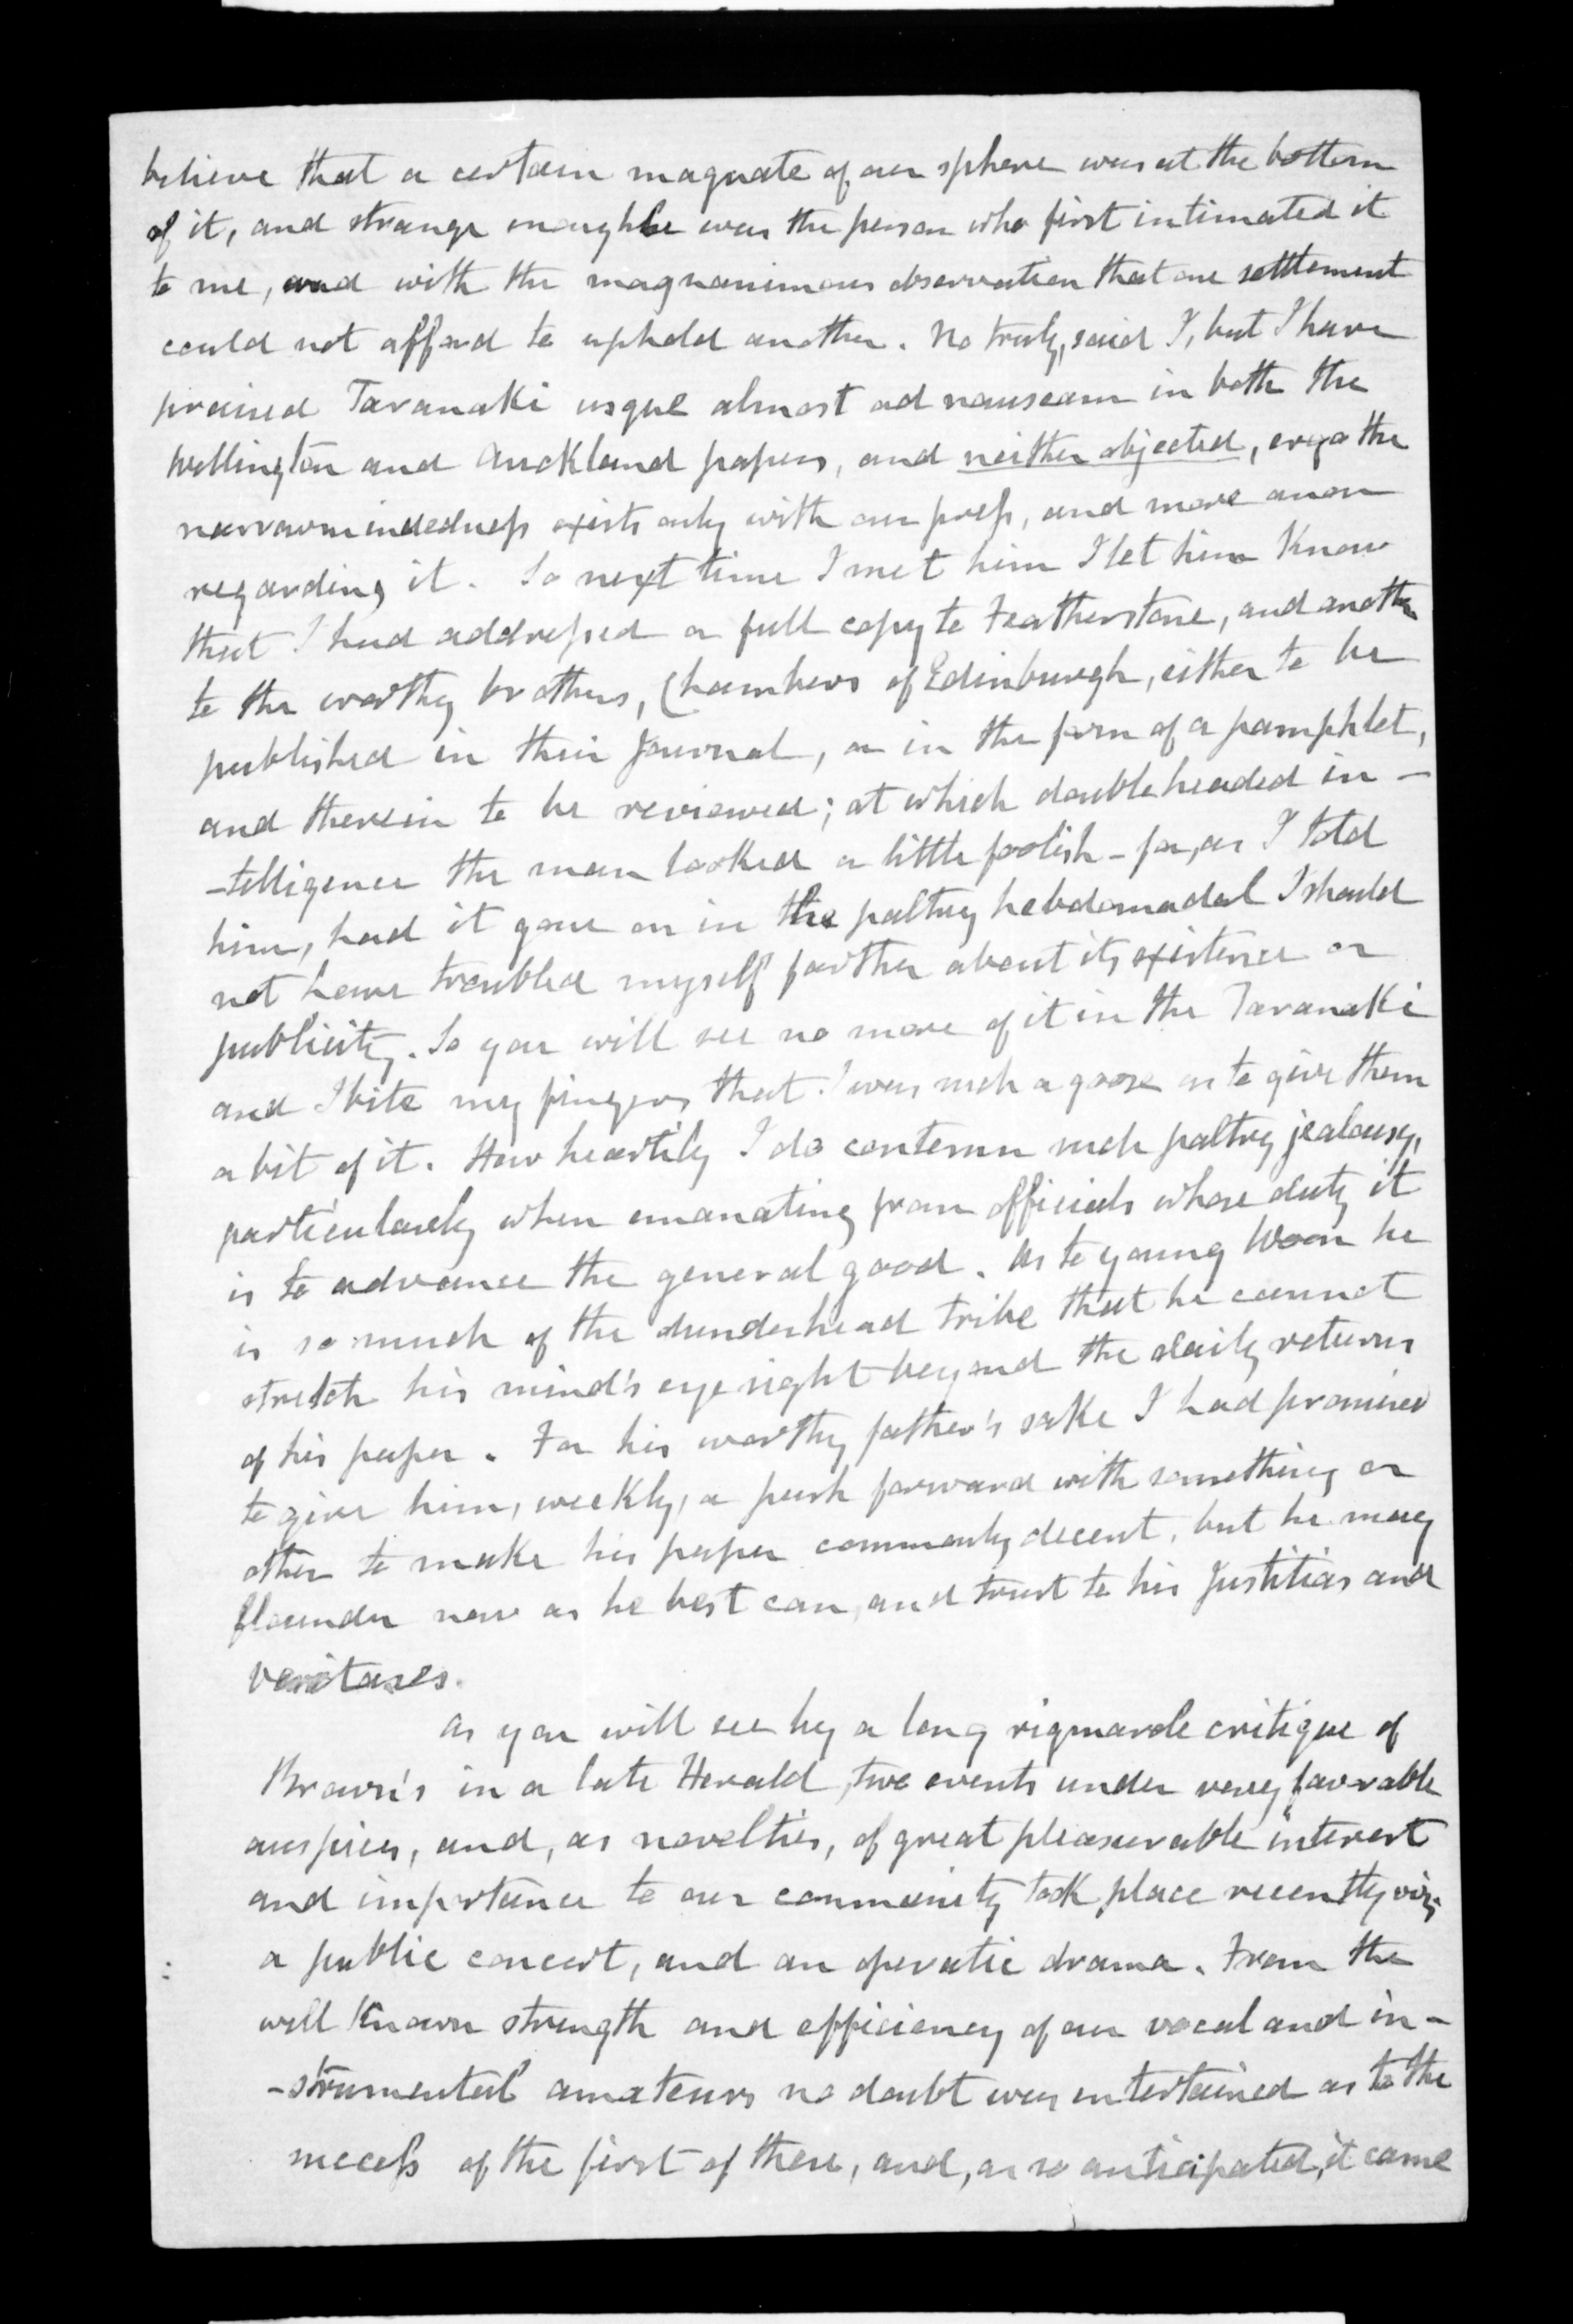 believe that a certain magnate of our sphere was at the bottom
of it, and strange enough he was the person who first intimated it
to me, and with the magnanimous observation that one settlement
could not afford to uphold another. No truly, said I, but I have
praised Taranaki usque almost ad nauseam in both the
Wellington and Auckland papers, and neither objected, ergo the
narrowmindedness exists only with our press, and more anon
regarding it. So next time I met him I let him know
that I had addressed a full copy to Featherstone, and another
to the worthy brothers, Chambers of Edinburgh, either to be
published in their Journal, or in the form of a pamphlet,
and therein to be reviewed; at which doubleheaded in-
-telligence the man looked a little foolish - for, as I told
him, had it gone on in the paltry hebdomadal I should
not have troubled myself farther about its existence or
publicity. So you will see no more of it in the Taranaki
and I bite my fingers that I was such a goose as to give them
a bit of it. How heartily I do contemn such paltry jealousy,
particularly when emanating from officials whose duty it
is to advance the general good. As to young Woon he
is so much of the dunderhead tribe that he cannot
stretch his mind's eye sight beyond the daily returns
of his paper. For his worthy father's sake I had promised
to give him, weekly, a push forward with something or
other to make his paper commonly decent, but he may
flounder now as he best can, and trust to his Justitias and
veritases.
As you will see by a long rigmarole critique of
Brown's in a late Herald, two events under very favorable
auspices, and, as novelties, of great pleasurable interest
and importance to our community took place recently viz;
a public concert, and an operatic drama. From the
well known strength and efficiency of our vocal and in-
-strumental amateurs no doubt was entertained as to the
success of the first of these, and, as so anticipated, it came